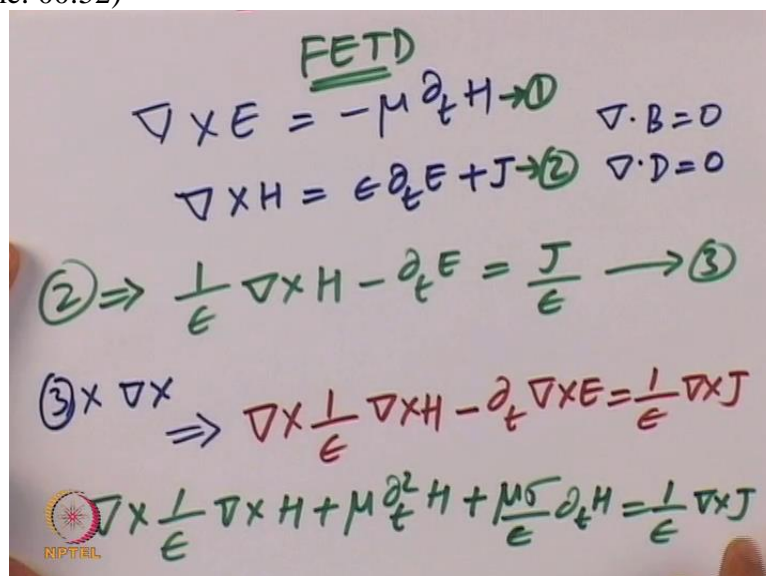 FETD
∇ × E = −μ ∂ₜ H → ①
∇ · B = 0
∇ × H = ε ∂ₜ E + J → ②
∇ · D = 0
② ⇒ 1/ε ∇ × H − ∂ₜ E = J/ε → ③
③ × ∇ × ⇒ ∇ × 1/ε ∇ × H − ∂ₜ ∇ × E = 1/ε ∇ × J
∇ × 1/ε ∇ × H + μ ∂ₜ² H + μσ/ε ∂ₜ H = 1/ε ∇ × J
NPTEL